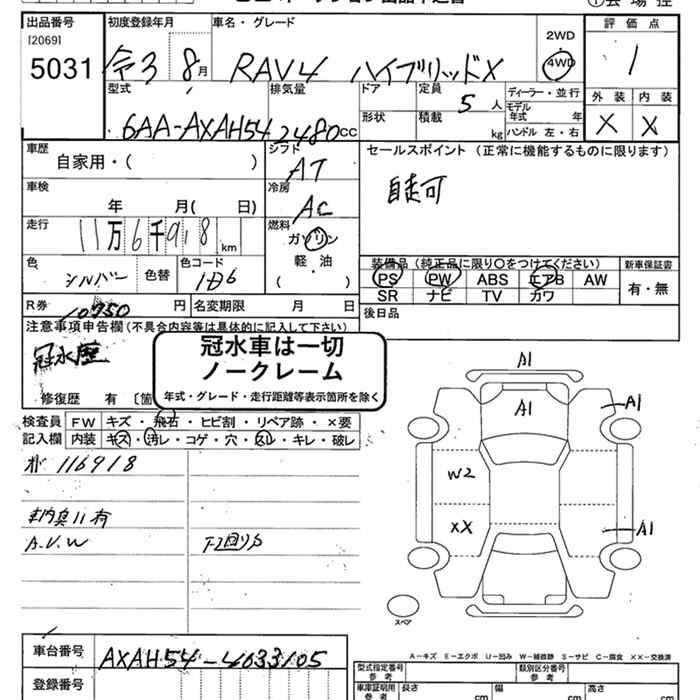 出品番号 初度登録年月 車名・グレード 評価点
[2069]
5031
令3 8月 RAV4 ハイブリッドX 2WD 4WD 1
型式 排気量 ドア 定員 5人 ディーラー・並行 外装 内装
6AA-AXAH54 2480cc 形状 積載 kg モデル年式 年 ハンドル 左・右 X X
車歴 自家用・( ) シフト AT セールスポイント (正常に機能するものに限ります)
自走可
車検 年 月( 日) 冷房 AC
走行 11万6千918km 燃料 ガソリン 軽・油 ( )
色 シルバー 色替 色コード 1D6
装備品 (純正品に限り○をつけてください) 新車保証書
PS PW ABS エアB AW 有・無
SR ナビ TV カワ
R券 10750円 名変期限 月 日 後日品
注意事項申告欄(不具合内容等は具体的に記入して下さい)
冠水歴
冠水車は一切
ノークレーム
年式・グレード・走行距離等表示箇所を除く
修復歴 有
検査員記入欄 FW キズ・飛石・ヒビ割・リペア跡・×要
内装 キズ・汚レ・コゲ・穴・スレ・キレ・破レ
116918
A.V.W
A1
A1
A1
W2
XX
A1
スペア
A-キズ E-エクボ U-凹み W-補修跡 S-サビ C-腐食 XX-交換済
車台番号 AXAH54-4033105
登録番号
型式指定番号 参考 類別区分番号 参考
車庫証明用 参考 長さ cm 幅 cm 高さ cm